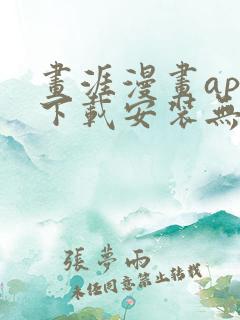 畫涯漫畫ap
下載安裝無
張夢雨
未经同意禁止转载